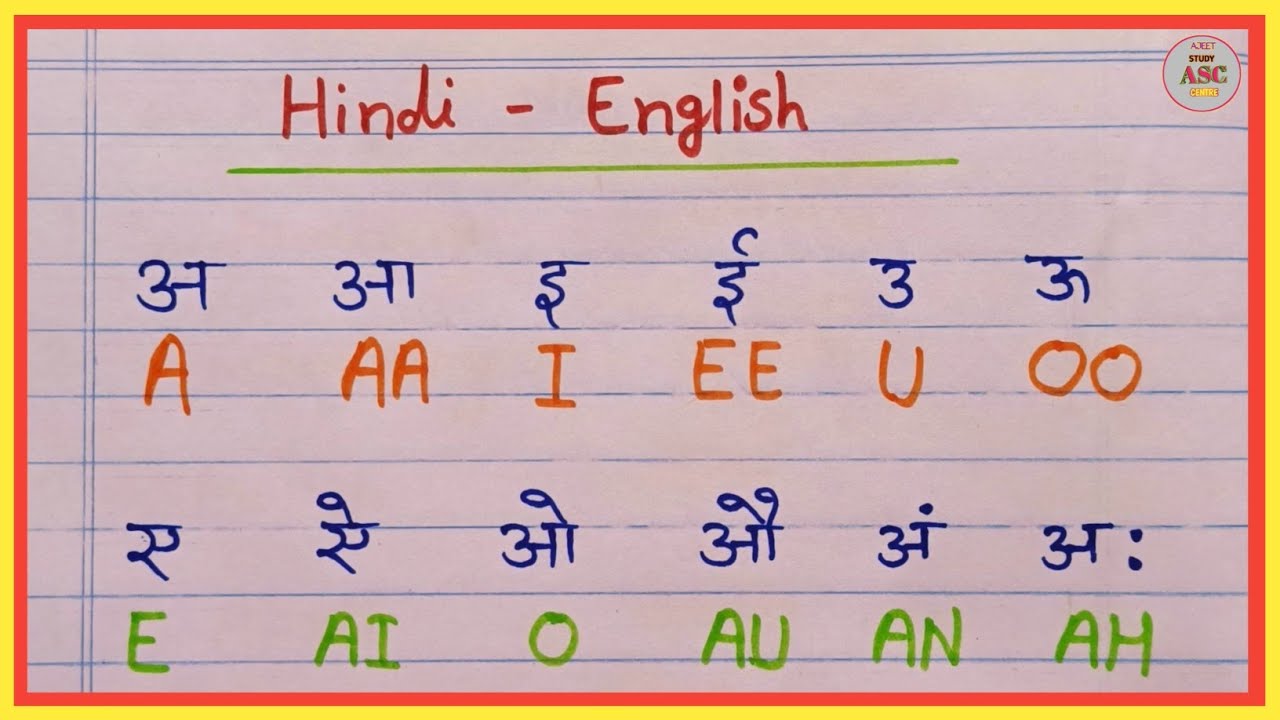 Hindi - English
AJEET
STUDY
ASC
CENTRE
अ आ इ ई उ ऊ
A AA I EE U OO
ए ऐ ओ औ अं अः
E AI O AU AN AH